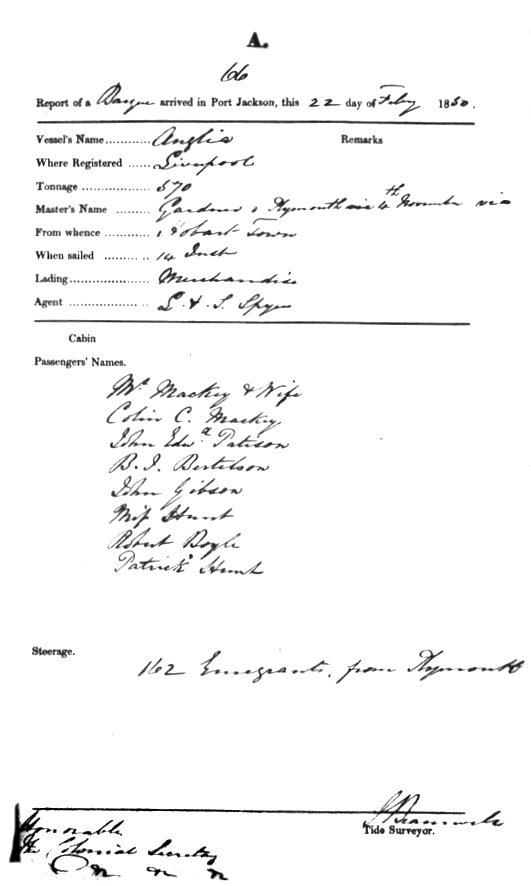 A.
66
Report of a Barque arrived in Port Jackson, this 22 day of Feby 1850.
Vessel's Name............ Anglia Remarks
Where Registered ...... Liverpool
Tonnage .................. 570
Master's Name ......... Gardner Plymouth 4th November via
From whence ............ Hobart Town
When sailed ......... .. 14 Inst
Lading..................... Merchandise
Agent .................. .. L. & S. Spyer
Cabin
Passengers' Names.
Mr. Mackey & Wife
Colin C. Mackey
John Edwd. Patison
B. J. Bertelson
John Gibson
Miss Hunt
Robert Boyle
Patrick Hunt
Steerage.
162 Emigrants, from Plymouth
Tide Surveyor.
Honorable
The Colonial Secretary